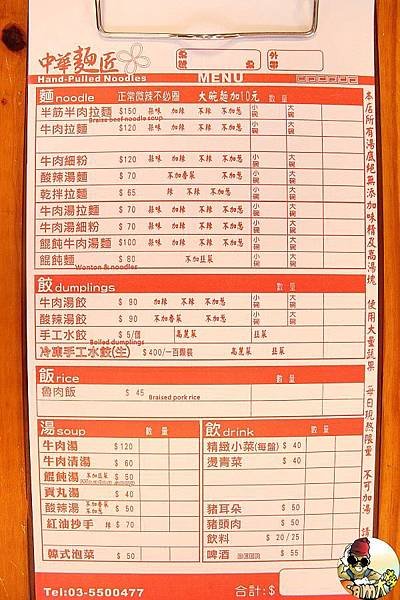 中華麵匠
Hand-Pulled Noodles
MENU
麵noodle 正常微辣不必圈 大碗麵加10元 數量
半筋半肉拉麵 $150 蒜味 加辣 不辣 不加蔥 小碗 大碗
Braise beef noodle soup
牛肉拉麵 $120 蒜味 加辣 不辣 不加蔥
牛肉細粉 $120 蒜味 加辣 不辣 不加蔥 小碗 大碗
酸辣湯麵 $70 不加香菜 不加蔥 小碗 大碗
乾拌拉麵 $65 辣 不辣 不加蔥 小碗 大碗
牛肉湯拉麵 $70 蒜味 加辣 不辣 不加蔥 小碗 大碗
牛肉湯細粉 $70 蒜味 加辣 不辣 不加蔥 小碗 大碗
餛飩牛肉湯麵 $100 蒜味 加辣 不辣 不加蔥 小碗 大碗
餛飩麵 $80 不加韭菜 小碗 大碗
Wonton & noodles
餃dumplings 數量
牛肉湯餃 $90 加辣 不辣 不加蔥 小碗 大碗
酸辣湯餃 $90 不加香菜 不加蔥 小碗 大碗
手工水餃 $5/個 高麗菜 韭菜
Boiled dumplings
冷凍手工水餃(生) $400/一百顆裝 高麗菜 韭菜
飯rice 數量
魯肉飯 $45 Braised pork rice
湯soup 數量
牛肉湯 $120
牛肉清湯 $60
餛飩湯 不加韭菜 $50
貢丸湯 $40
酸辣湯 不加香菜 不加蔥 $50
紅油抄手 辣 $70
韓式泡菜 $50
飲drink 數量
精緻小菜(每盤) $40
燙青菜 $40
豬耳朵 $50
豬頭肉 $50
飲料 $20/25
啤酒 BEER $55
Tel:03-5500477
合計:$
本店所有湯底絕無添加味精及高湯塊 使用大量蔬果 每日現熬限量 不可加湯